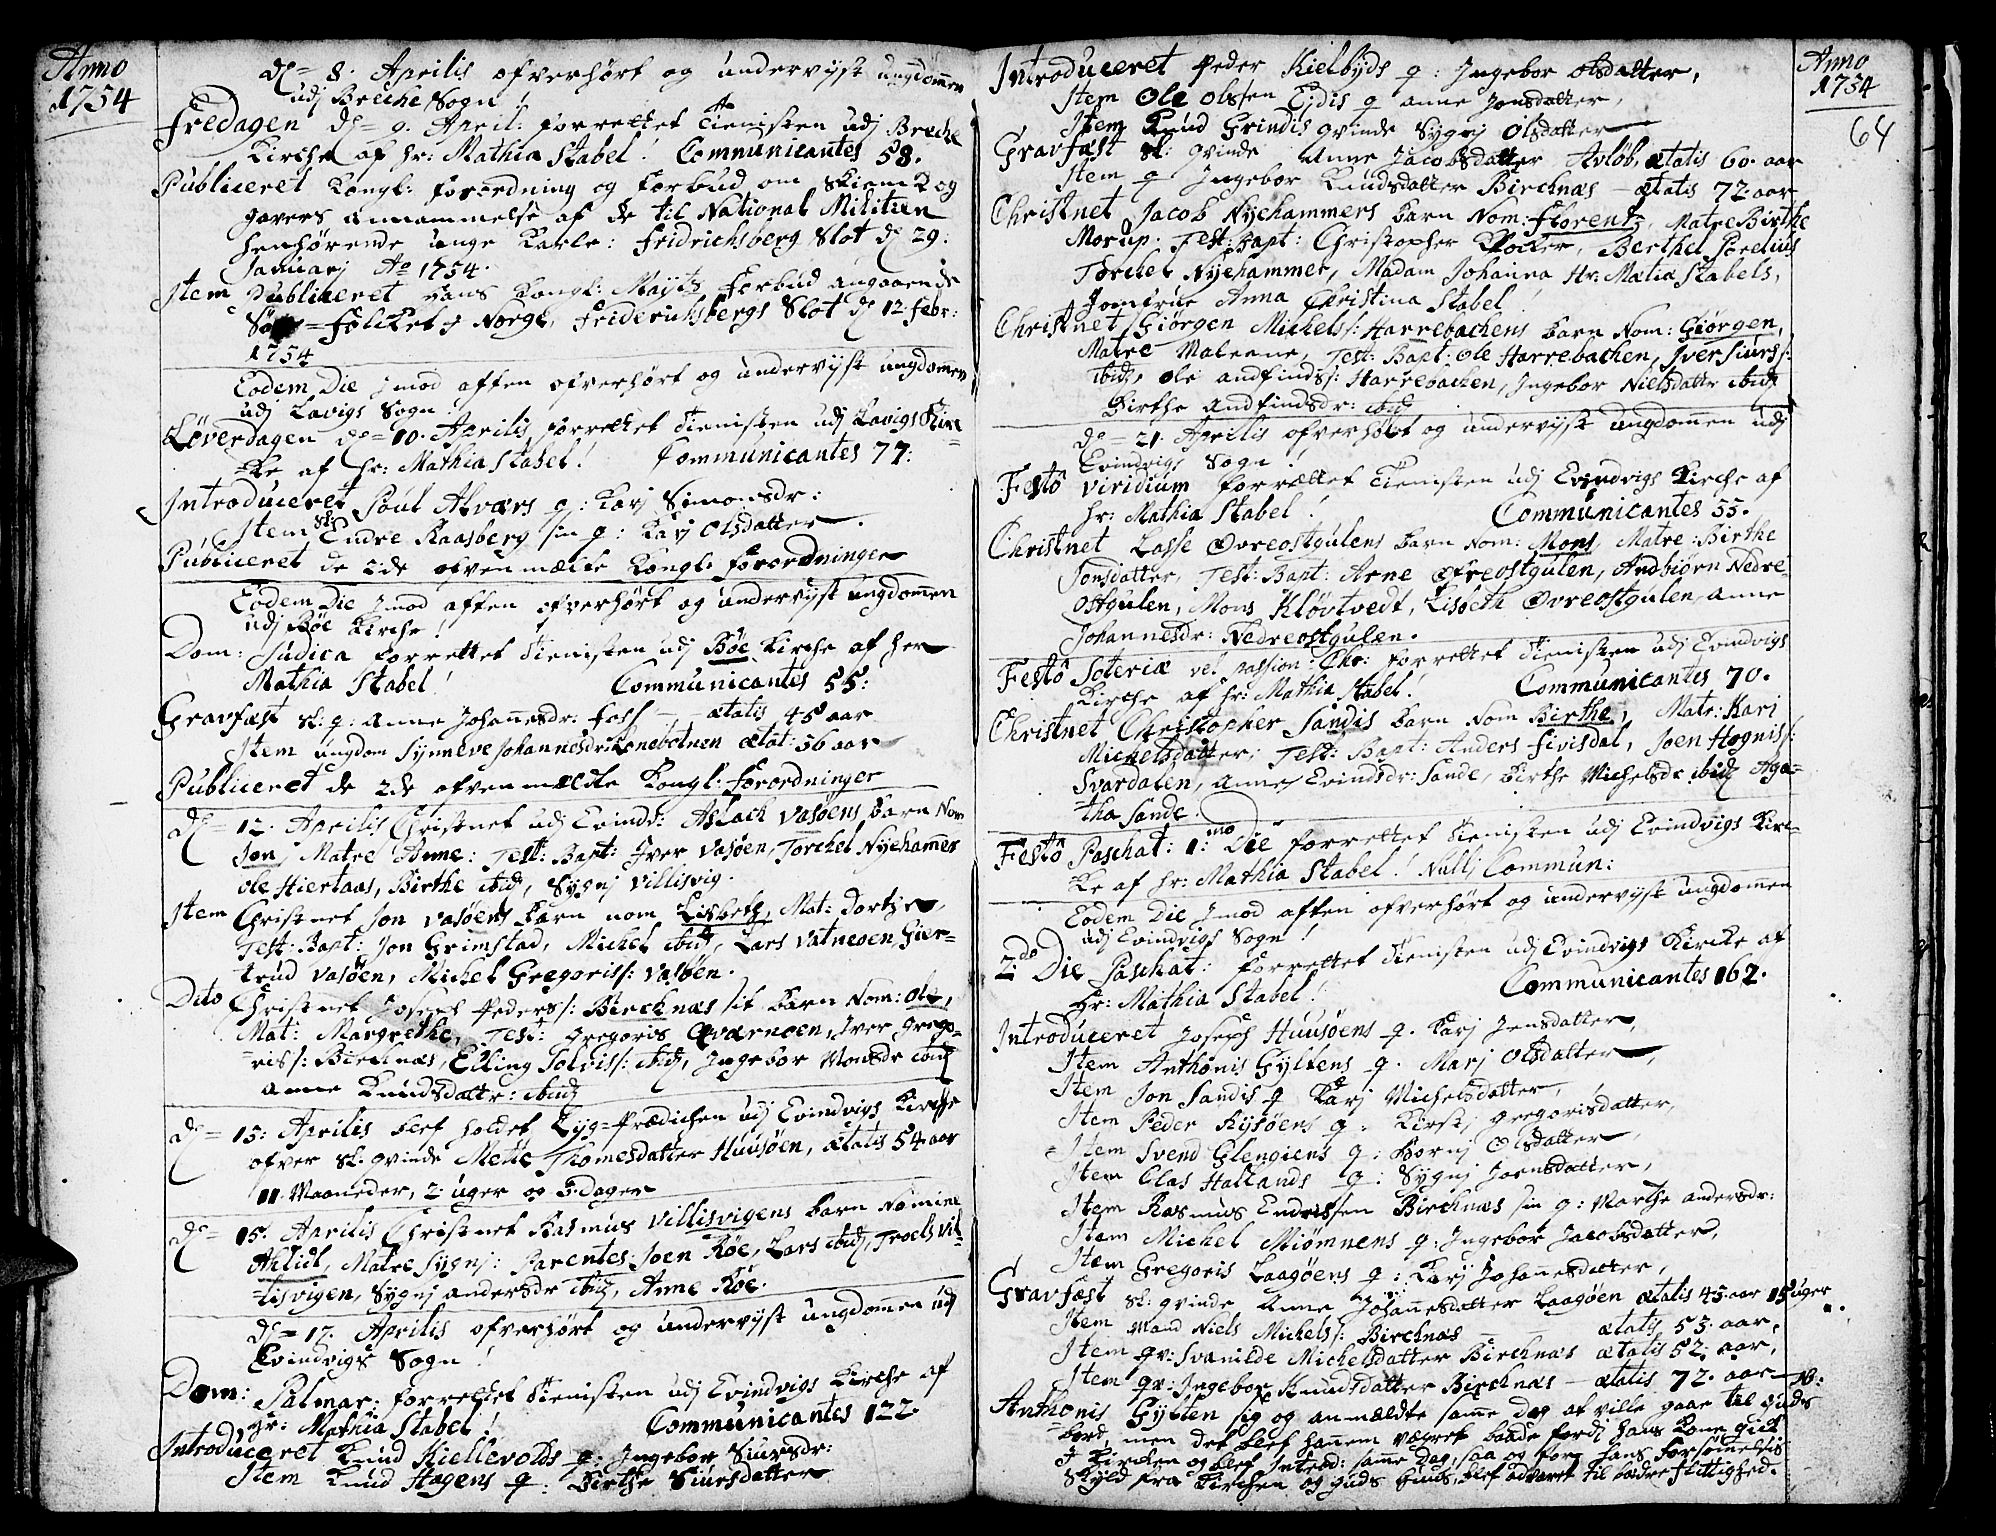 Anno
1754
d= 8. Aprilis ofverhørt og undervijst ungdommen
udj Breche Sogn!
Fredagen d= 9. April: forrettet Tienisten udj Breche
Kirche af hr: Mathia Stabel! Communicantes 58.
Publiceret Kongl: forordning og forbud om Skienk og
gavers annammelse af de til National Militien
henhørende unge Karle: Fridrichsberg Slot d 29:
Januarj Ao 1754.
Item Publiceret hans Kongl: Mayts forbud angaaende
Søe-Folcket i Norge, Friderichsbergs Slot d 12. febr:
1754
Eodem Die imod afften ofverhørt og undervijst ungdommen
udj Lavigs Sogn.
Løverdagen d= 10. Aprilis forrettet Tienisten udj Lavigs Kir-
-ke af hr: Mathia Stabel! Communicantes 77:
Introduceret Poul Alværs q: Karj Simonsdr:
Item Sl: Endre Raasberg sin q: Karj Olsdatter.
Publiceret de 2:de ofvenmælte Kongl: forordninger
Eodem Die imod afften ofverhørt og undervijst ungdommen
udj Bøe Kirche!
Dom: Judica forrettet Tienisten udj Bøe Kirche af her
Mathia Stabel! Communicantes 55:
Gravfæst Sl: q: Anne Johannesdr: Foss — ætatis 45 aar
Item ungdom Synneve Johannesdr: Kenebotnen ætat: 56 aar
Publiceret de 2de ofvenmældte Kongl: forordninger
d= 12. Aprilis Christnet udj Evindv: Aslach Vasøens barn Nom
Jon, Matre Anne: Test: Bapt: Iver Vasøen, Torchel Nyehamer
Ole Hiertaas, Birthe ibid, Sygnj Villisvig.
Item Christnet Jon Vasøens barn nom Lisbeth, Mat: Dortje,
Test: Bapt: Jon Grimstad, Michel ibid, Lars Vatneoen, Gier-
trud Vasøen, Michel Gregoriss: Vasøen.
Dito Christnet Joseph Peders: Bircknæs sit barn Nom: Ole,
Mat: Margrethe, Test: Gregoris Qværnoen, Iver Grego-
-ris s: Bircknæs, Elling Solvis s: ibid, Ingebor Monsdr ibid
Anne Knudsdattr: ibid
d= 15: Aprilis blef holdet Lyg-Prædichen udj Evindvigs Kirche
ofver Sl: qvinde Mette Thomesdatter Huusøen, ætatis 54 aar
11. Maaneder, 2: uger og 3 dager
d= 15. Aprilis Christnet Rasmus Villisvigens barn Nomine
Atlidt, Matre Sygnj: Parentes: Joen Røe, Lars ibid, Troels Vil-
-lisvigen, Sygnj Andersdr ibid, Anne Røe.
d= 17. Aprilis ofverhørt og undervijst ungdommen udj
Evindvigs Sogn!
Dom: Palmar: forrettet Tienisten udj Evindvigs Kirche af
hr: Mathia Stabel! Communicantes 122.
Introduceret Knud Kiellevolds q: Ingebor Siursdr:
Item Knud Hagens q: Birthe Siursdatter
Anno
1754
64
Introduceret Peder Kielbyds q: Ingebor Olsdatter,
Item Ole Olssen Eides q Anne Jonsdatter,
Item Knud Grindis qvinde Sygnj Olsdatter
Gravfæst Sl: qvinde Anne Jacobsdatter Avløb, ætatis 60. aar
Item q Ingebor Knudsdatter Bircknæs — ætatis 72 aar
Christnet Jacob Nyehammers barn Nom: Florentz, Matre Birthe
Morup. Test: Bapt: Christopher Klocker, Berthel Forelius
Torchel Nyehammer, Madam Johanna Hr: Matia Stabels,
Jomfrue Anna Christina Stabel!
Christnet Giørgen Michels s: Harrebachens barn Nom: Giørgen,
Matre Malene, Test: Bapt: Ole Harrebachen, Iver Siurs s:
ibid, Ole Andfinds s: Harrebachen, Ingebor Nielsdattr ibid
Birthe Andfindsdr: ibid
d= 21. Aprilis ofverhørt og undervijst ungdommen udj
Evindvigs Sogn!
Festo Viridium forrettet Tienisten udj Evindvigs Kirche af
hr: Mathia Stabel! Communicantes 55.
Christnet Lasse Øvreostgulens barn Nom: Mons, Matre: Birthe
Jonsdatter, Test: Bapt: Arne Øfreostgulen, Andbiørn Nedre-
Ostgulen, Mons Kløvtvedt, Lisbeth Øvreostgulen, Anne
Johannesdr: Nedreostgulen.
Festo Soteriæ vel passion: Chr: forrettet Tienisten udj Evindvigs
Kirche af hr: Mathia Stabel! Communicantes 70.
Christnet Christopher Sandis barn Nom Birthe, Matr: Kari
Michelsdatter, Test: Bapt: Anders Fivisdal, Joen Hognis s:
Svardalen, Anne Evindsdr: Sande, Birthe Michelsdr ibid Aga-
-tha Sande.
Festo Paschat: 1:mo Die forrettet Tienisten udj Evindvigs Kir-
ke af hr: Mathia Stabel! Nullj Commun:
Eodem Die imod afften ofverhørt og undervijst ungdommen
udj Evindvigs Sogn!
2do Die Paschat: forrettet Tienisten udj Evindvigs Kircke af
hr: Mathia Stabel! Communicantes 162.
Introduceret Joseph Huusøens q. Karj Jensdatter,
Item Anthonis Gyltens q. Marj Olsdatter,
Item Jon Sandis q Karj Michelsdatter,
Item Peder Rysøens q: Kirstj Gregorisdatter,
Item Svend Glengiens q: Bornj Olsdatter,
Item Clas Hallands q: Sygnj Joensdatter,
Item Rasmus Endresen Bircknæs sin q: Marthe Andersdr:
Item Michel Miømnens q: Ingebor Jacobsdatter,
Item Gregoris Laagøens q: Karj Johannesdatter,
Gravfæst Sl: qvinde Anne Johannesdatter Laagøen ætatis 45. aar 15 uger
Item Mand Niels Michels s: Bircknæs — ætatis 53. aar,
Item qv: Svanilde Michelsdatter Bircknæs ætatis 52. aar,
Item qv: Ingebor Knudsdatter Bircknæs — ætatis 72. aar
Anthonis Gylten sig og anmældte samme dag at ville gaae til Guds
bord, men det blef hannem vægret baade fordj hans Kone gick
I Kircken og blef Introd: samme Dag, saa og for hans forsømmelsis
skyld fra Kirchen og Guds Huus, blef advaret til bedre flittighed.